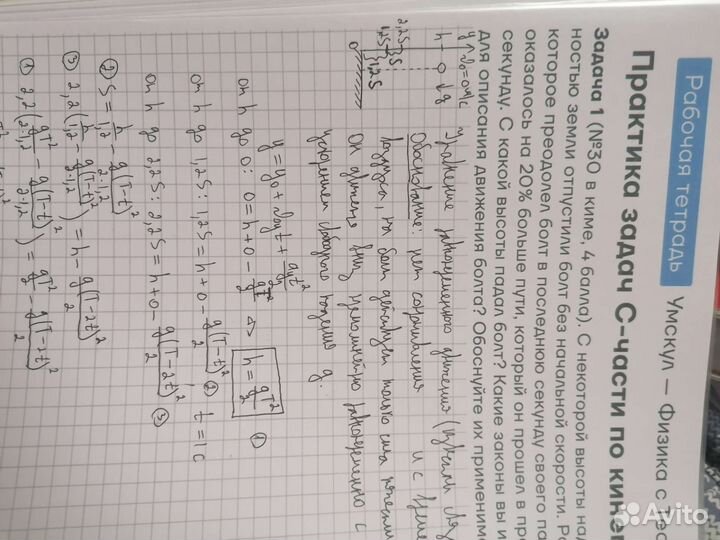 Рабочая тетрадь
Умскул — Физика с
Практика задач С-части по
Задача 1 (№30 в киме, 4 балла). С некоторой высоты над
ностью земли отпустили болт без начальной скорости.
которое преодолел болт в последнюю секунду своего
оказалось на 20% больше пути, который он прошел в
секунду. С какой высоты падал болт? Какие законы вы
для описания движения болта? Обоснуйте их
Уравнение равноускоренного движения
Обоснование: нет сопротивления
воздуха, на болт действует только сила
Он движется вниз прямолинейно равноускоренно с
ускорением свободного падения g.
y = y₀ + v₀yt + gyt²/2
от h до 0: 0 = h + 0 - gT²/2 => h = gT²/2 ①
от h до 1,2S: 1,2S = h + 0 - g(T-t)²/2 ② t = 1 c
от h до 2,2S: 2,2S = h + 0 - g(T-2t)²/2 ③
② S = h/1,2 - g(T-t)²/2·1,2
③ 2,2(h/1,2 - g(T-t)²/2·1,2) = h - g(T-2t)²/2
① 2,2(gT²/2·1,2 - g(T-t)²/2·1,2) = gT²/2 - g(T-2t)²/2
Avito